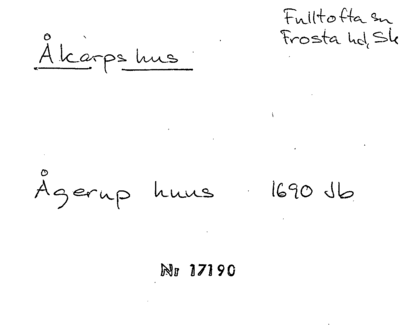 Fulltofta sn
Frosta hd, Sk
Åkarps hus
Ågerup huus 1690 Jb
Nr 17190